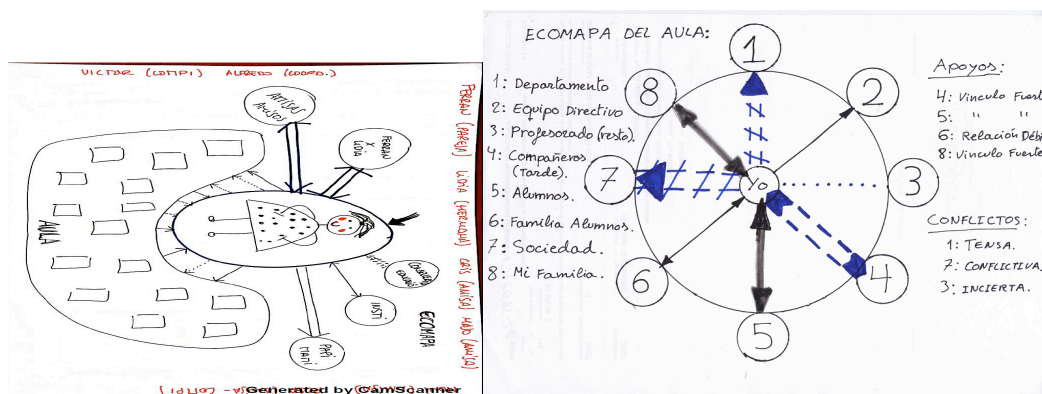 VICTOR (COMPI) ALFREDO (COORD.)
FERRAN (PAREJA) LIDIA (HERMANA) CRIS (AMIGA) MAJO (AMIGA)
AMIGAS
AMIGOS
FERRAN
X
LIDIA
AULA
INSTI
PAPI
MAMI
ECOMAPA
Generated by CamScanner
ECOMAPA DEL AULA:
1: Departamento
2: Equipo Directivo
3: Profesorado (resto).
4: Compañeros
(Tarde).
5: Alumnos.
6: Familia Alumnos.
7: Sociedad.
8: Mi Familia.
1
2
3
4
5
6
7
8
Yo
Apoyos:
4: Vinculo Fuert
5: " "
6: Relación Débi
8: Vinculo Fuerte
CONFLICTOS:
1: TENSA.
7: CONFLICTIVA.
3: INCIERTA.